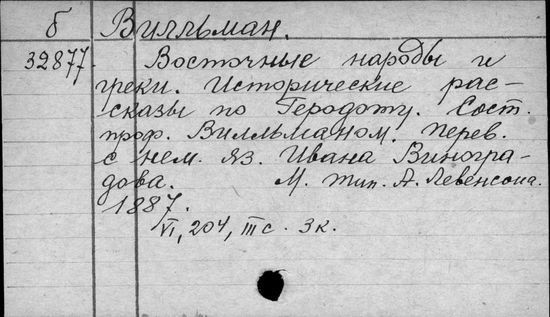 б Вилльман.
32877 Восточные народы и
греки. Исторические рас-
сказы по Геродоту. Сост.
проф. Вилльманом. Перев.
с нем. яз. Ивана Виногра-
дова. М. тип. А. Левенсона.
1887.
VI, 204, III с. 3к.